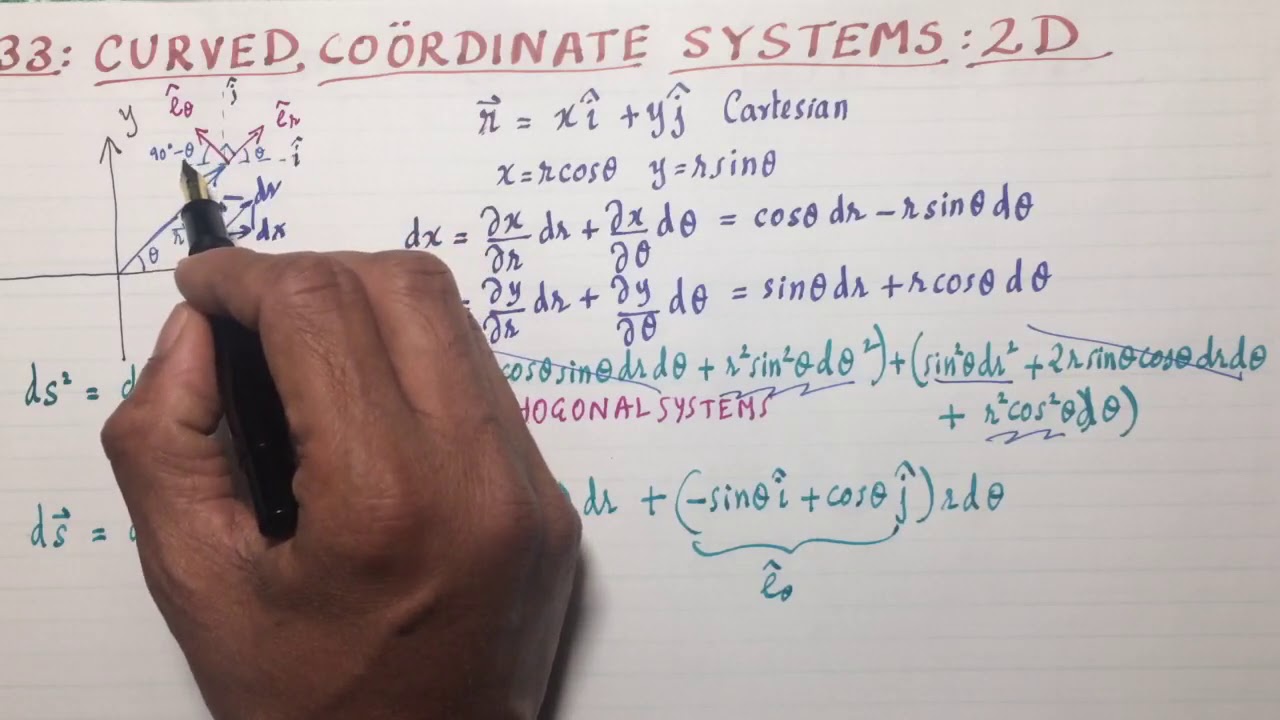 33: CURVED COÖRDINATE SYSTEMS: 2D
y
ê_θ ĵ ê_r
90°-θ θ î
r⃗ = xî + yĵ Cartesian
x = rcosθ y = rsinθ
dr
dx
r
θ
dx = ∂x/∂r dr + ∂x/∂θ dθ = cosθ dr - r sinθ dθ
= ∂y/∂r dr + ∂y/∂θ dθ = sinθ dr + r cosθ dθ
ds² = cosθ sinθ dr dθ + r² sin²θ dθ²) + (sin²θ dr² + 2r sinθ cosθ dr dθ
+ r² cos²θ dθ)
OGONAL SYSTEMS
ds⃗ = dr + (-sinθ î + cosθ ĵ) r dθ
ê_θ